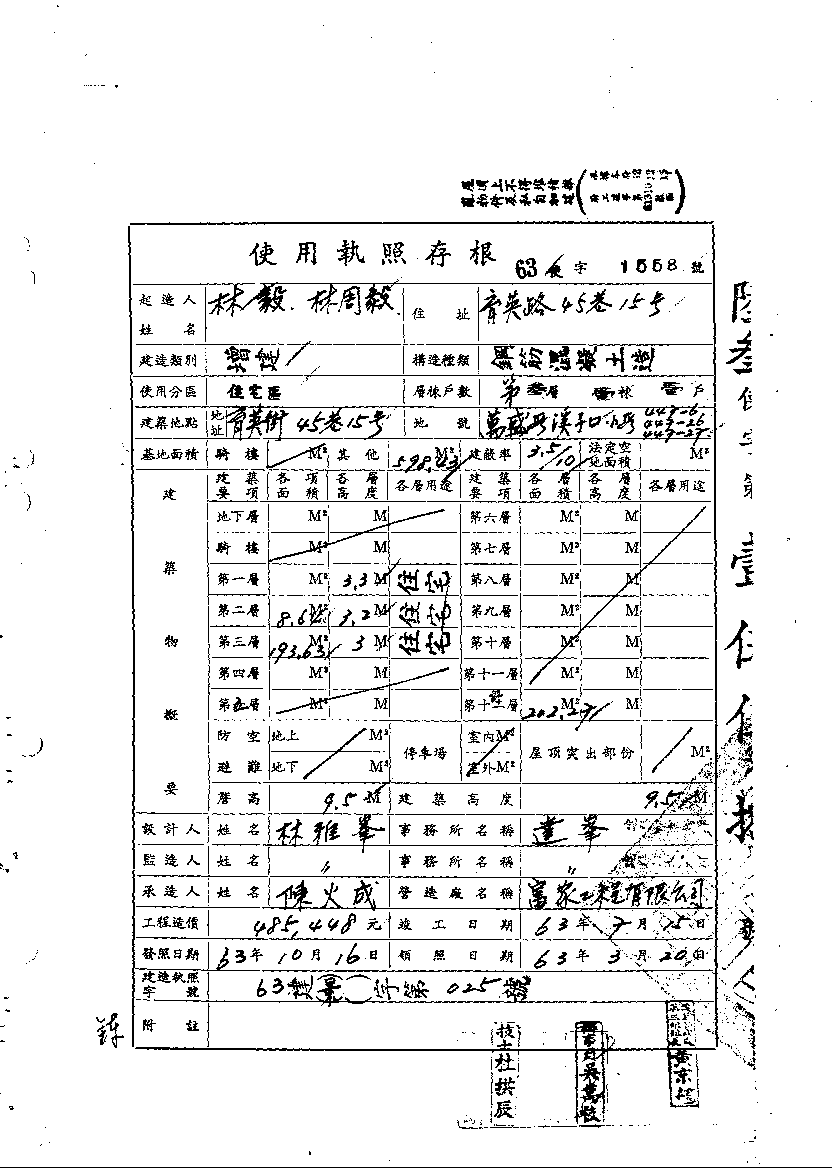 屋頂上不得堆積
使用執照存根 63使字 1558 號
起造人姓名 林毅、林周毅 住址 育英路45巷15号
建造類別 增建 構造種類 鋼筋混凝土造
使用分區 住宅區 層棟戶數 第叁層 壹棟 壹戶
建築地點 地址 育英街45巷15号 地號 萬盛段溪子口小段 447-6 447-26 447-27
基地面積 騎樓 M² 其他 598.43 M² 建蔽率 3.5/10 法定空地面積 M²
建築物概要 建築要項 各項面積 各層高度 各層用途 建築要項 各層面積 各層高度 各層用途
地下層 M² M 第六層 M² M
騎樓 M² M 第七層 M² M
第一層 M² 3.3 M 住宅 第八層 M² M
第二層 8.64 M² 3.2 M 住宅 第九層 M² M
第三層 193.63 M² 3 M 住宅 第十層 M² M
第四層 M² M 第十一層 M² M
第五層 M² M 202.27 M² M
防空避難 地上 M² 地下 M² 停車場 室內M² 室外M² 屋頂突出部份 M²
簷高 9.5 M 建築高度 9.5 M
設計人 姓名 林雅峯 事務所名稱 達峯
監造人 姓名 〃 事務所名稱 〃
承造人 姓名 陳火成 營造廠名稱 富家工程有限公司
工程造價 485,448元 竣工日期 63年7月15日
發照日期 63年10月16日 領照日期 63年3月20日
建造執照字號 63建景字第025號
附註
技士杜拱辰